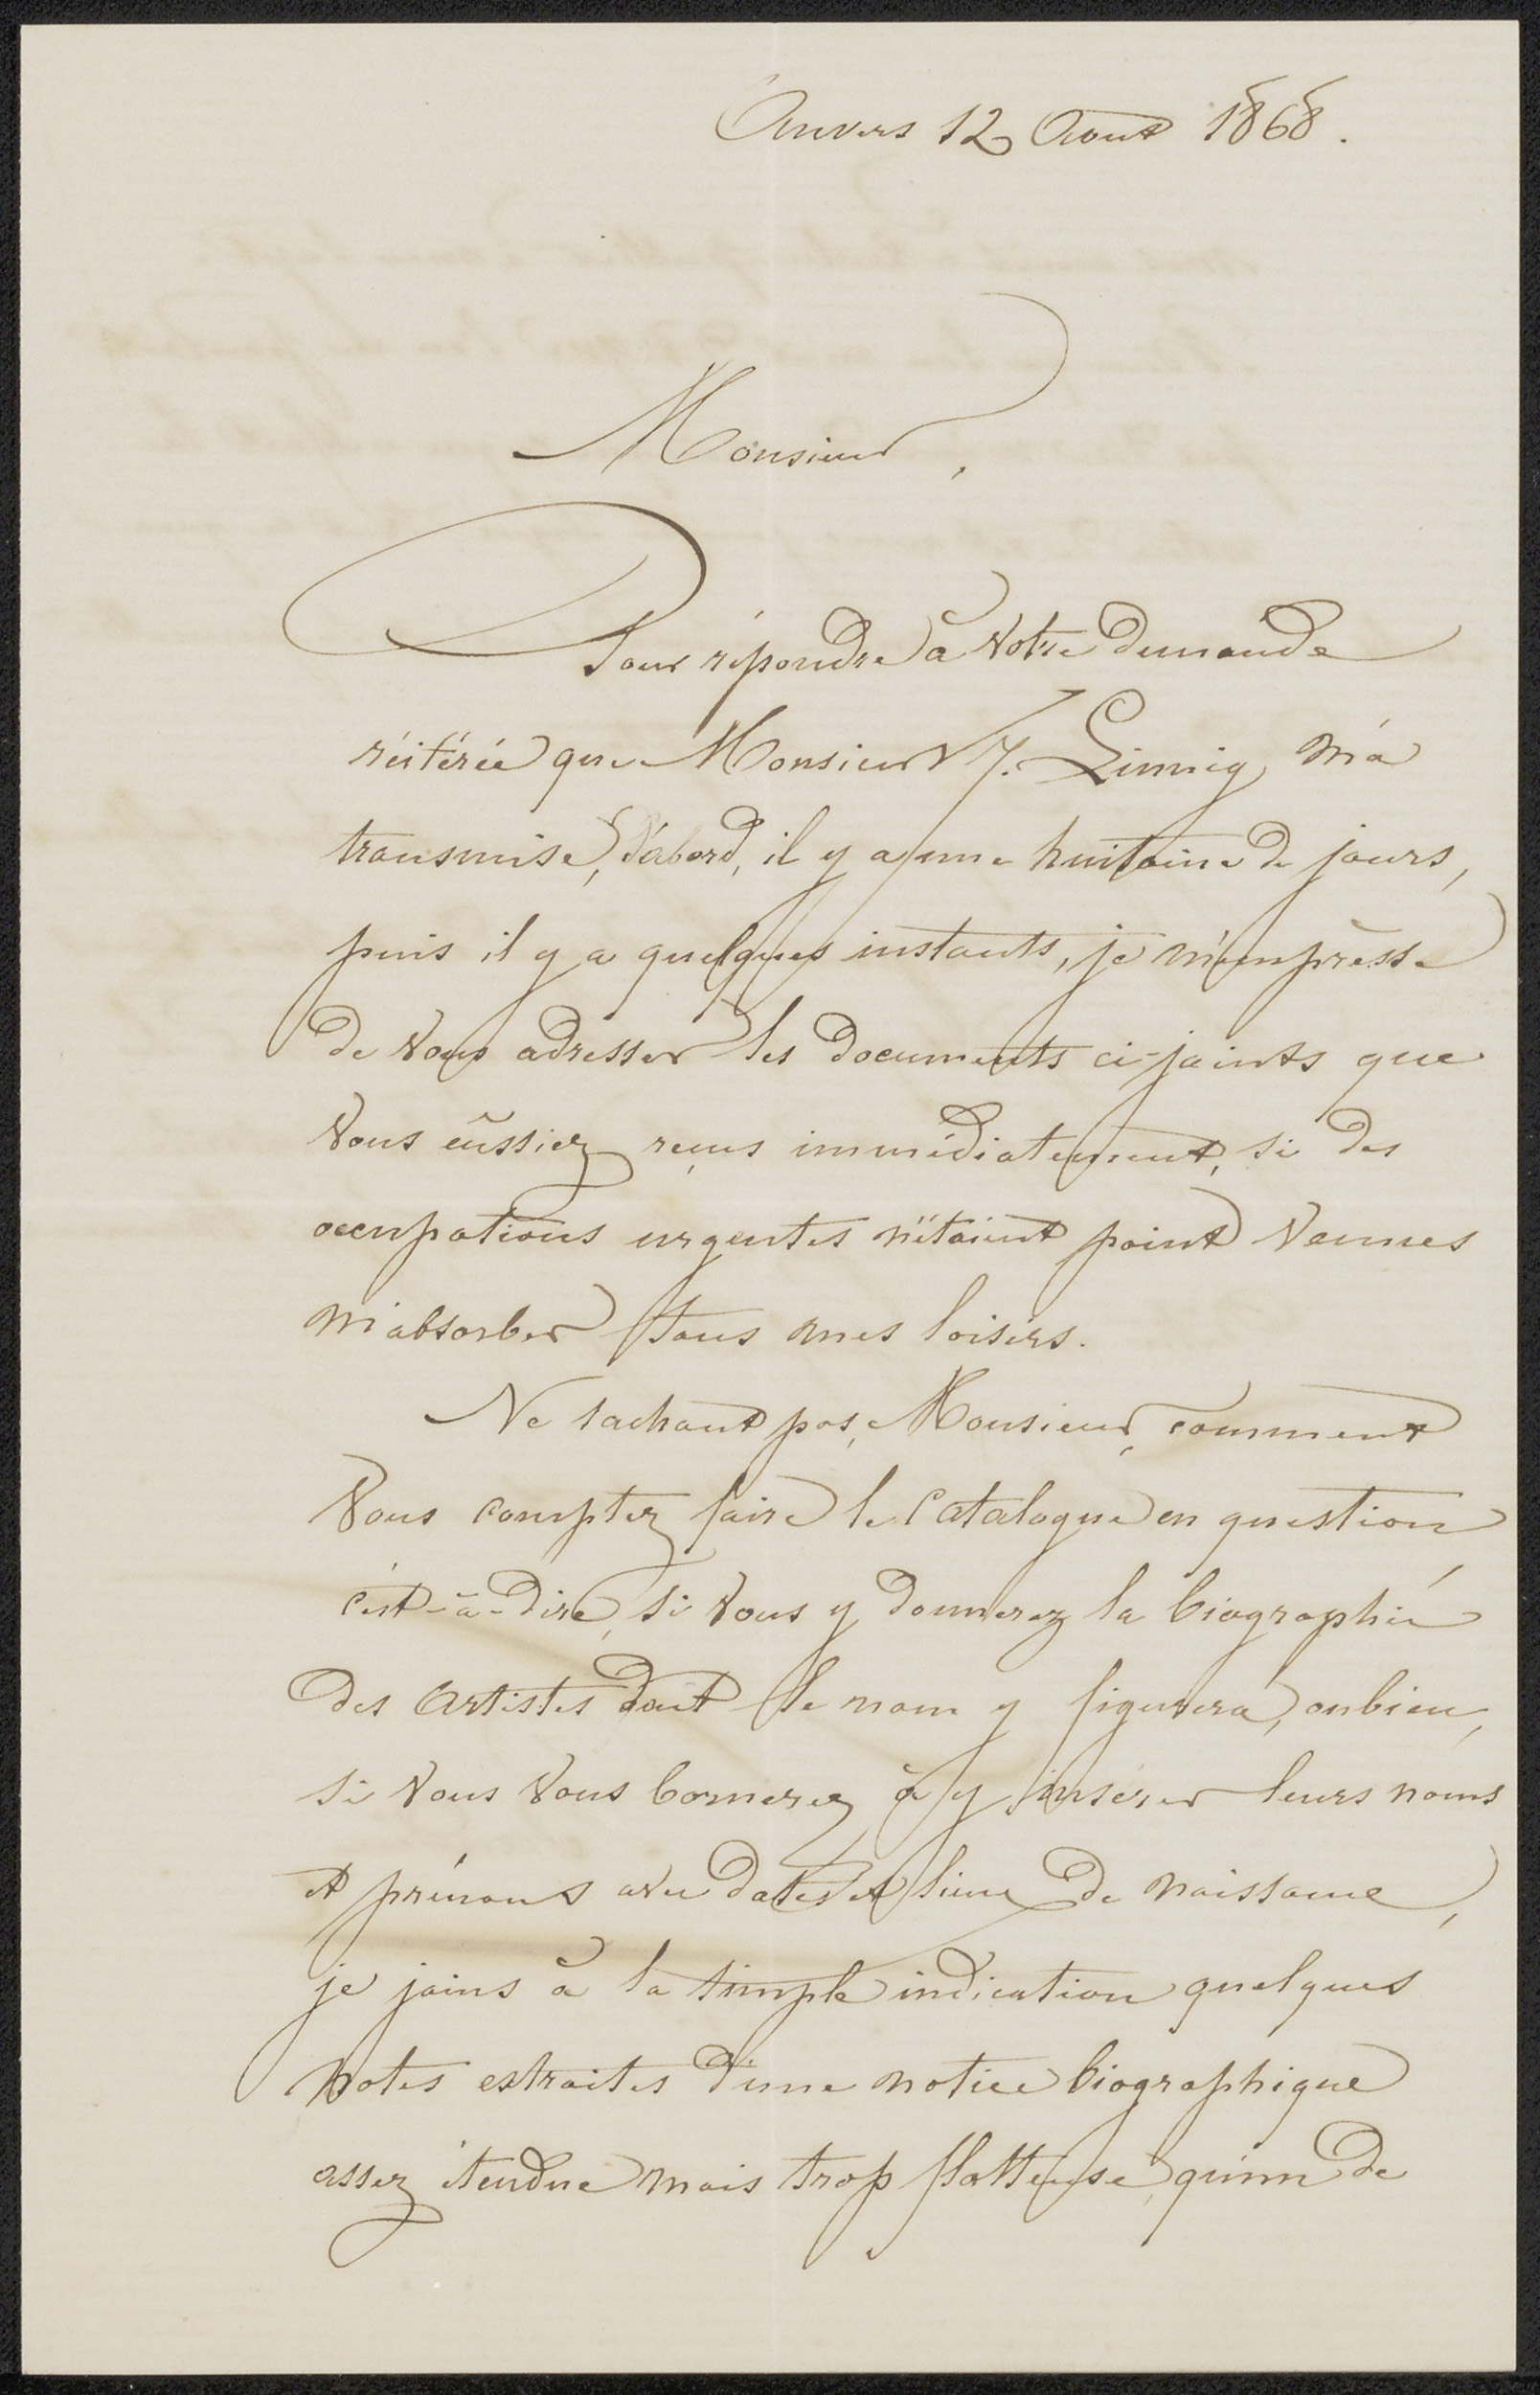 Anvers 12 Aout 1868.
Monsieur,
Pour répondre à Votre demande
réitérée que Monsieur J. Linnig m'a
transmise, d'abord, il y a une huitaine de jours,
puis il y a quelques instants, je m'empresse
de Vous adresser les documents ci-joints que
Vous eûssiez reçus immédiatement, si des
occupations urgentes n'étaient point Venues
m'absorber tous mes loisirs.
Ne sachant pas, Monsieur, comment
Vous comptez faire le Catalogue en question
c'est-à-dire, si Vous y donnerez la biographie
des Artistes dont le nom y figurera, oubien,
si Vous Vous bornerez à y insérer leurs noms
et prénoms avec dates et lieux de naissance,
je joins à la simple indication quelques
notes extraites d'une notice biographique
assez étendue mais trop flatteuse, qu'un de